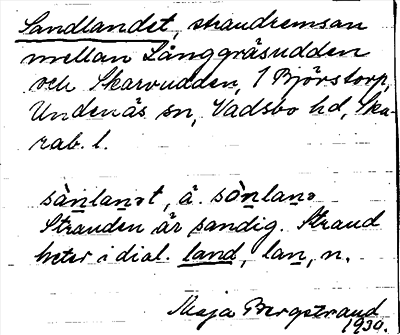 Sandlandet, strandremsan
mellan Långgräsudden
och Skarvudden, 1 Björstorp,
Undenäs sn, Vadsbo hd, Ska-
rab. l.
sànlanət, å. sònlanə
Stranden är sandig. Strand
heter i dial. land, lan, n.
Maja Bergstrand
1930.